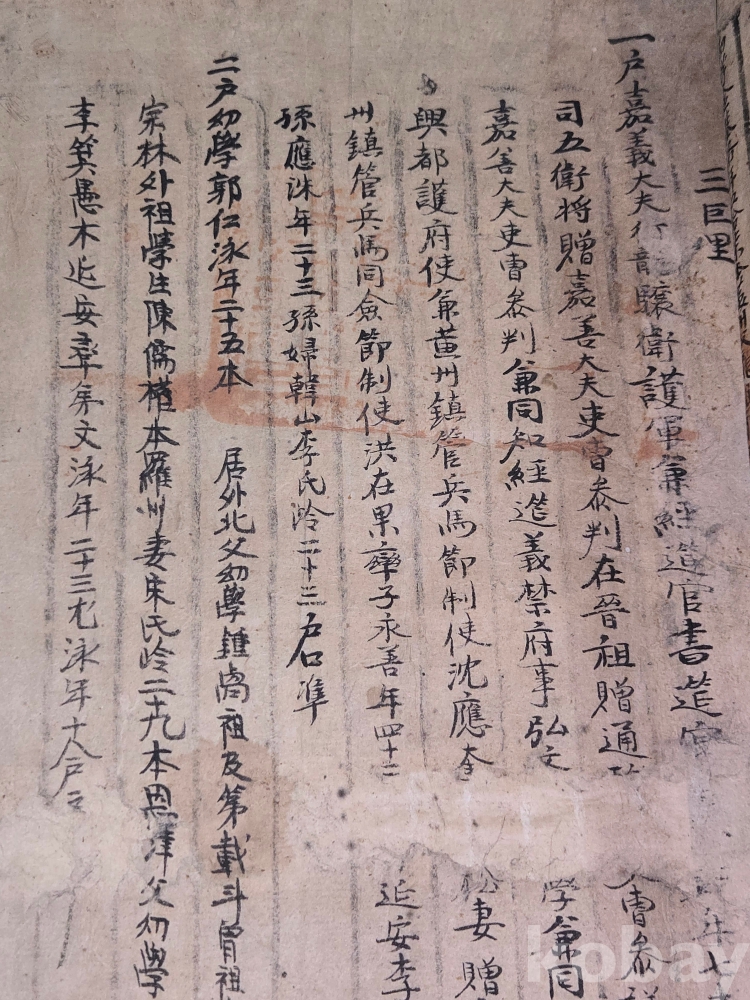 三巨里
一戶嘉義大夫行龍驤衛護軍兼經筵官書筵官
司五衛將贈嘉善大夫吏曹叅判在晉祖贈通 曹叅
嘉善大夫吏曹叅判兼同知經筵義禁府事弘文 學兼同
興都護府使兼黃州鎮管兵馬節制使沈應奎 妻贈
州鎮管兵馬同僉節制使洪在果率子永善年四十二 延安李
孫應洙年二十三孫婦韓山李氏齡二十三戶口準
二戶幼學郭仁泳年二十五本 居外北父幼學鍾卨祖及第載斗曾祖
宗林外祖學生陳儒權本羅州妻宋氏齡二十九本恩津父幼學
李箕愚本延安率弟文泳年二十三 泳年十八戶口
kobay